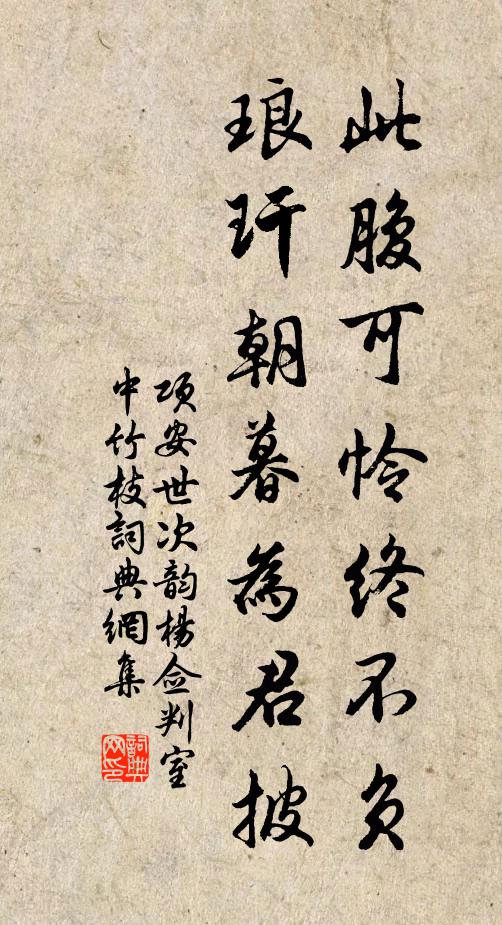 此腹可怜终不负
琅玕朝暮為君披
项安世次韵楊佥判室
中竹枝詞典網集
詞典网印